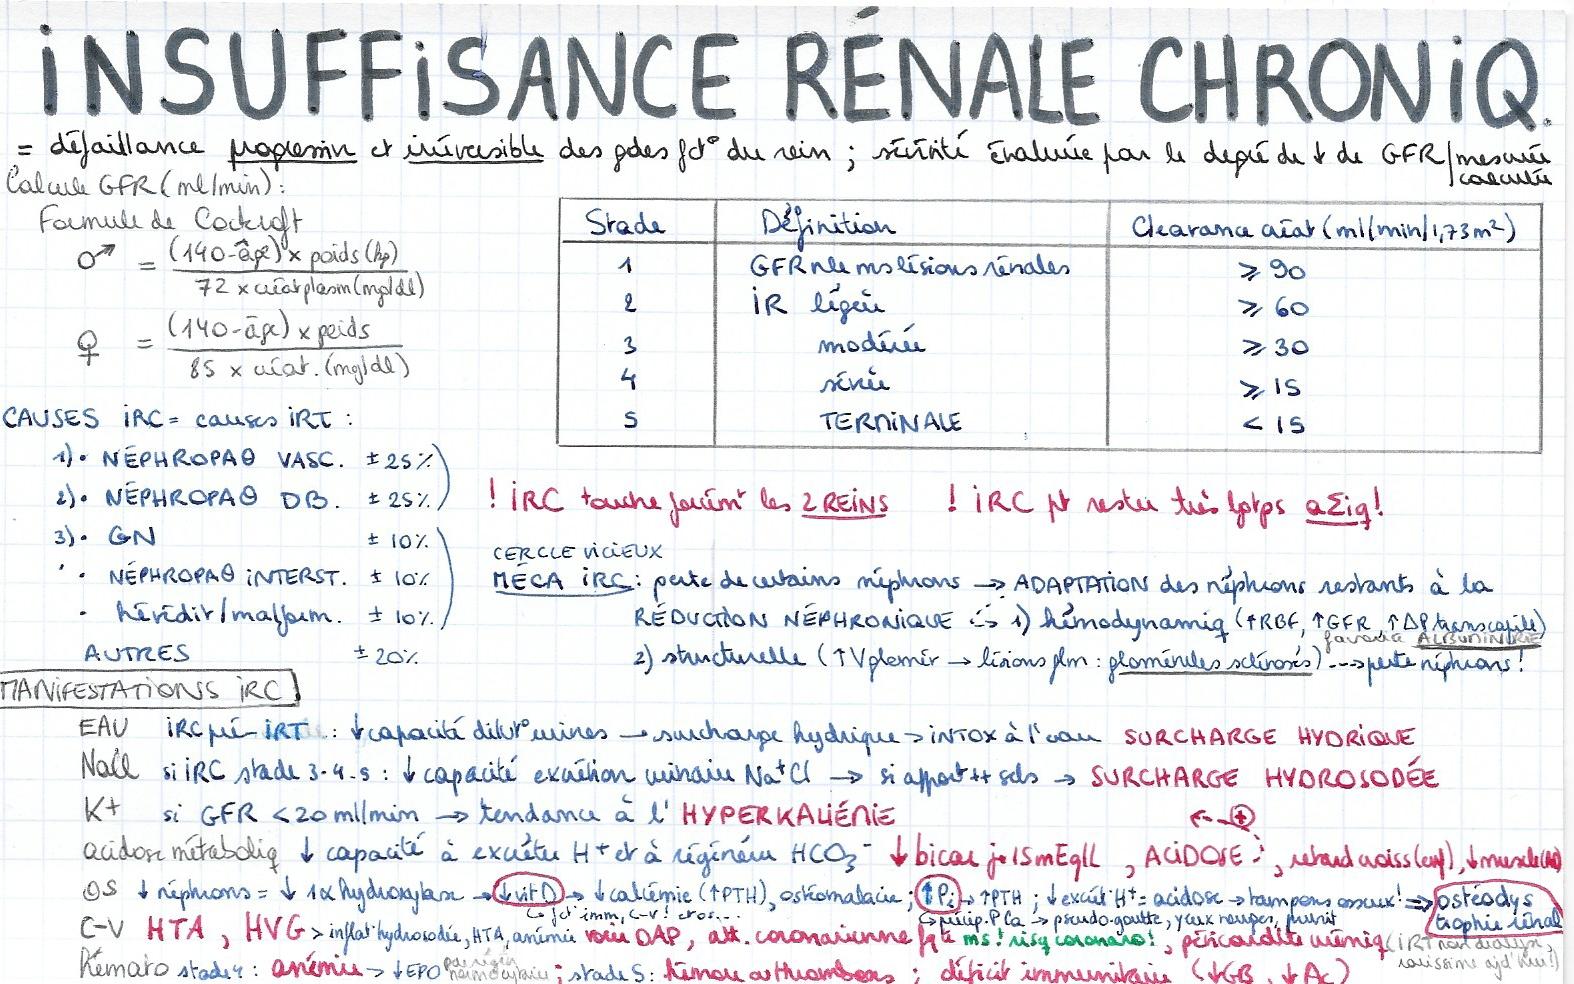 INSUFFISANCE RÉNALE CHRONIQ.
= défaillance progressive et irréversible des gdes fct° du rein ; sévérité évaluée par le degré de ↓ de GFR / mesurée
calculée
Calcule GFR (ml/min) :
Formule de Cockroft
♂ = (140-âge) x poids (kg)
72 x créat plasm (mg/dl)
♀ = (140-âge) x poids
85 x créat. (mg/dl)
Stade Définition Clearance créat (ml/min/1,73m²)
1 GFR nle ms lésions rénales ⩾ 90
2 IR légère ⩾ 60
3 modérée ⩾ 30
4 sévère ⩾ 15
5 TERMINALE < 15
CAUSES IRC = causes IRT :
1) • NÉPHROPAθ VASC. ± 25%
2) • NÉPHROPAθ DB. ± 25%
3) • GN ± 10%
• NÉPHROPAθ INTERST. ± 10%
• hérédit/malform. ± 10%
AUTRES ± 20%
! IRC touche forcémt les 2 REINS ! IRC pt rester très lgtps aΣiq !
CERCLE VICIEUX
MÉCA IRC : perte de certains néphrons → ADAPTATION des néphrons restants à la
RÉDUCTION NÉPHRONIQUE 1) hémodynamiq (↑RBF, ↑GFR, ↑ΔP transcapill)
favorise ALBUMINURIE
2) structurelle (↑V glomér → lésions glm : glomérules sclérosés) ---> perte néphrons !
MANIFESTATIONS IRC
EAU IRC pré-IRT : ↓ capacité dilut° urines → surcharge hydrique → INTOX à l'eau SURCHARGE HYDRIQUE
NaCl si IRC stade 3-4-5 : ↓ capacité excrétion urinaire Na⁺Cl⁻ → si apport ++ sels → SURCHARGE HYDROSODÉE
K+ si GFR < 20 ml/min → tendance à l' HYPERKALIÉMIE
← ⊕
acidose métaboliq ↓ capacité à excréter H⁺ et à régénérer HCO₃⁻ ↓ bicar 15mEq/L , ACIDOSE , retard croiss (enf), ↓ muscle
OS ↓ néphrons = ↓ 1α hydroxylase → ↓ vit D → ↓ calcémie (↑PTH), ostéomalacie ; ↑Pi → ↑PTH ; ↓ excrét° H⁺ = acidose → tampons osseux ! ⇒ ostéodys
trophie rénale
↪ fct° imm, C-V ! et os... ↪ précip. P Ca → pseudo-goutte, yeux rouges, prurit
C-V HTA , HVG > inflat° hydrosodée, HTA, anémie voire OAP, att. coronarienne fqte ms ! risq coronaro !, péricardite urémiq (IRT non dialysée,
rarissime ajd'hui !)
Hémato stade 4 : anémie → ↓EPO ; stade 5 : hémorr ou thromboses ; déficit immunitaire (↓GB, ↓Ac)